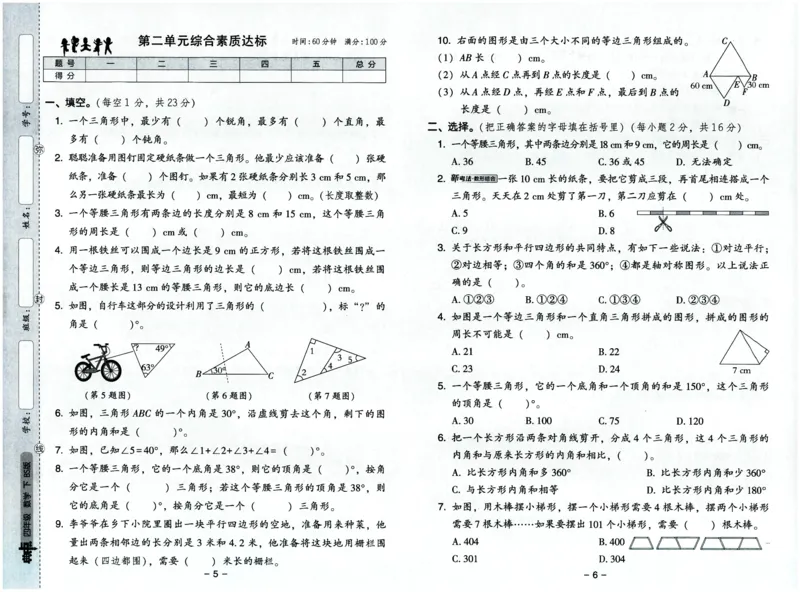 第二单元综合素质达标
时间:60分钟 满分:100分
题号 一 二 三 四 五 总分
得分
一、填空。(每空1分，共23分)
1. 一个三角形中，最少有（ ）个锐角，最多有（ ）个直角，最
多有（ ）个钝角。
2. 聪聪准备用图钉固定硬纸条做一个三角形。他最少应该准备（ ）张硬
纸条，准备（ ）个图钉。如果有2张硬纸条分别长3 cm和5 cm，那
么另一张硬纸条最长为（ ）cm，最短为（ ）cm。(长度取整数)
3. 一个等腰三角形有两条边的长度分别是8 cm和15 cm，这个等腰三角
形的周长是（ ）cm或（ ）cm。
4. 用一根铁丝可以围成一个边长是9 cm的正方形，若将这根铁丝围成一
个等边三角形，则等边三角形的边长是（ ）cm，若将这根铁丝围
成一个腰长是13 cm的等腰三角形，则它的底边长（ ）cm。
5. 如图，自行车这部分的设计利用了三角形的（ ），标“?”的
角是（ ）°。
? 49°
63°
A
B
30°
C
1
2
3
4
5
(第5题图) (第6题图) (第7题图)
6. 如图，三角形ABC的一个内角是30°，沿虚线剪去这个角，剩下的图
形的内角和是（ ）°。
7. 如图，已知∠5=40°，那么∠1+∠2+∠3+∠4=（ ）°。
8. 一个等腰三角形，它的一个底角是38°，则它的顶角是（ ）°，按角
分它是一个（ ）三角形；若这个等腰三角形的顶角是38°，则
它的底角是（ ）°，按角分它是一个（ ）三角形。
9. 李爷爷在乡下小院里圈出一块平行四边形的空地，准备用来种菜，他
量出两条相邻的边长分别是3米和4.2米，他准备将这块地用栅栏围
起来(四边都围)，需要（ ）米长的栅栏。
- 5 -
10. 右面的图形是由三个大小不同的等边三角形组成的。
(1) AB长（ ）cm。
(2) 从A点经C点再到B点的长度是（ ）cm。
(3) 从A点经D点，再经E点和F点，最后到B点的
长度是（ ）cm。
C
A
B
60 cm
E
30 cm
F
D
二、选择。(把正确答案的字母填在括号里)(每小题2分，共16分)
1. 一个等腰三角形，其中两条边分别是18 cm和9 cm，它的周长是（ ）cm。
A. 36 B. 45 C. 36或45 D. 无法确定
2. 一张10 cm长的纸条，要把它剪成三段，再首尾相连搭成一个
三角形。天天在2 cm处剪了第一刀，第二刀应剪在（ ）cm处。
A. 5 B. 6
C. 9 D. 8
3. 关于长方形和平行四边形的共同特点，有如下一些说法：①对边平行；
②对边相等；③四个角的和是360°；④都是轴对称图形。以上说法正
确的是（ ）。
A. ①②③ B. ①②④ C. ①③④ D. ②③④
4. 如图是一个等边三角形和一个直角三角形拼成的图形，拼成的图形的
周长不可能是（ ）cm。
A. 21 B. 22
C. 23 D. 24
7 cm
5. 一个等腰三角形，它的一个底角和一个顶角的和是150°，这个三角形
的顶角是（ ）°。
A. 30 B. 100 C. 75 D. 120
6. 把一个长方形沿两条对角线剪开，分成4个三角形，这4个三角形的
内角和与原来长方形的内角和相比，（ ）。
A. 比长方形内角和多360° B. 比长方形内角和少360°
C. 与长方形内角和相等 D. 比长方形内角和少180°
7. 如图，用木棒摆小梯形，摆一个小梯形需要4根木棒，摆两个小梯形
需要7根木棒……如果要摆出101个小梯形，需要（ ）根木棒。
A. 404 B. 400
C. 301 D. 304
- 6 -
学号:
姓名:
班级:
学校:
密
封
线
四年级 数学 下